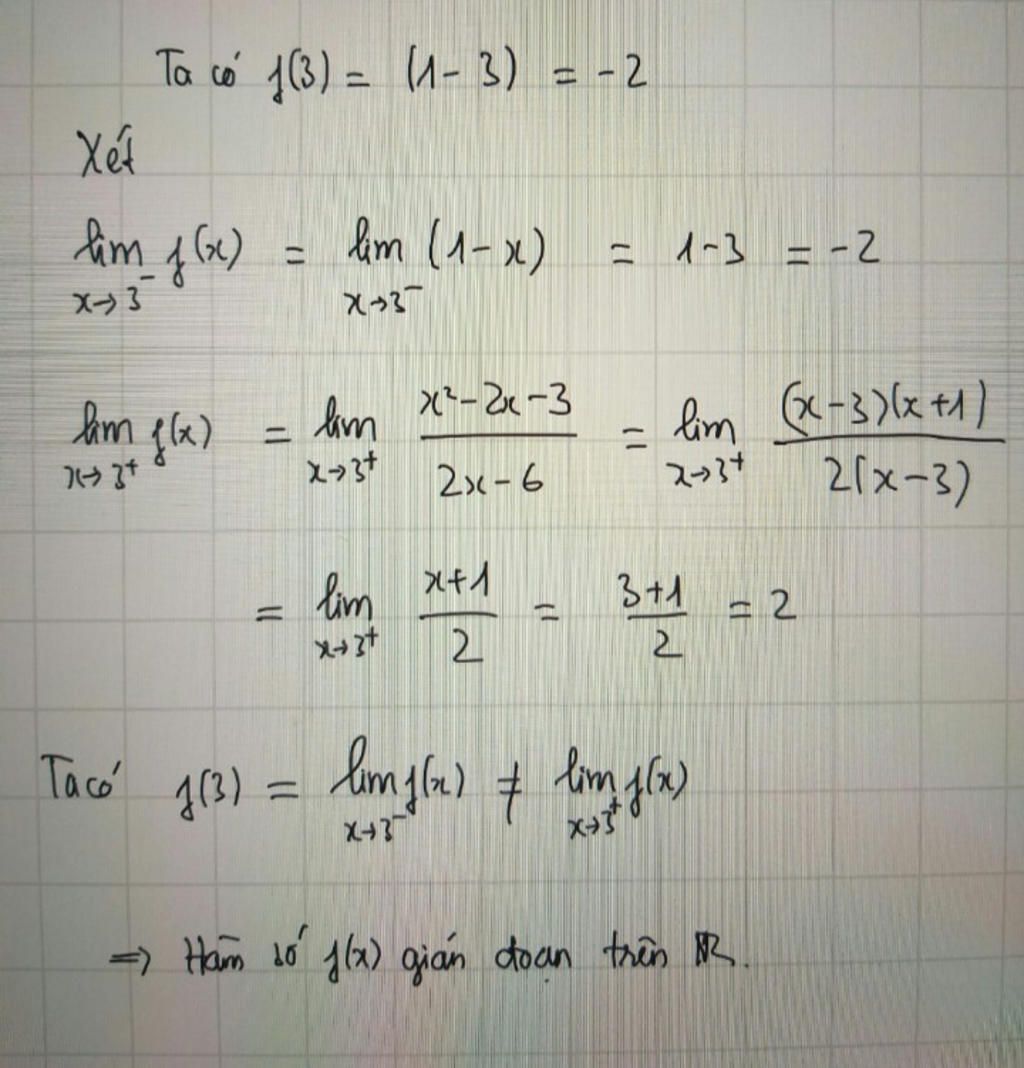 Ta có f(3) = (1 - 3) = -2
Xét
lim x→3⁻ f(x) = lim x→3⁻ (1-x) = 1-3 = -2
lim x→3⁺ f(x) = lim x→3⁺ (x²-2x-3)/(2x-6) = lim x→3⁺ ((x-3)(x+1))/(2(x-3))
= lim x→3⁺ (x+1)/2 = (3+1)/2 = 2
Ta có f(3) = lim x→3⁻ f(x) ≠ lim x→3⁺ f(x)
⇒ Hàm số f(x) gián đoạn trên ℝ.